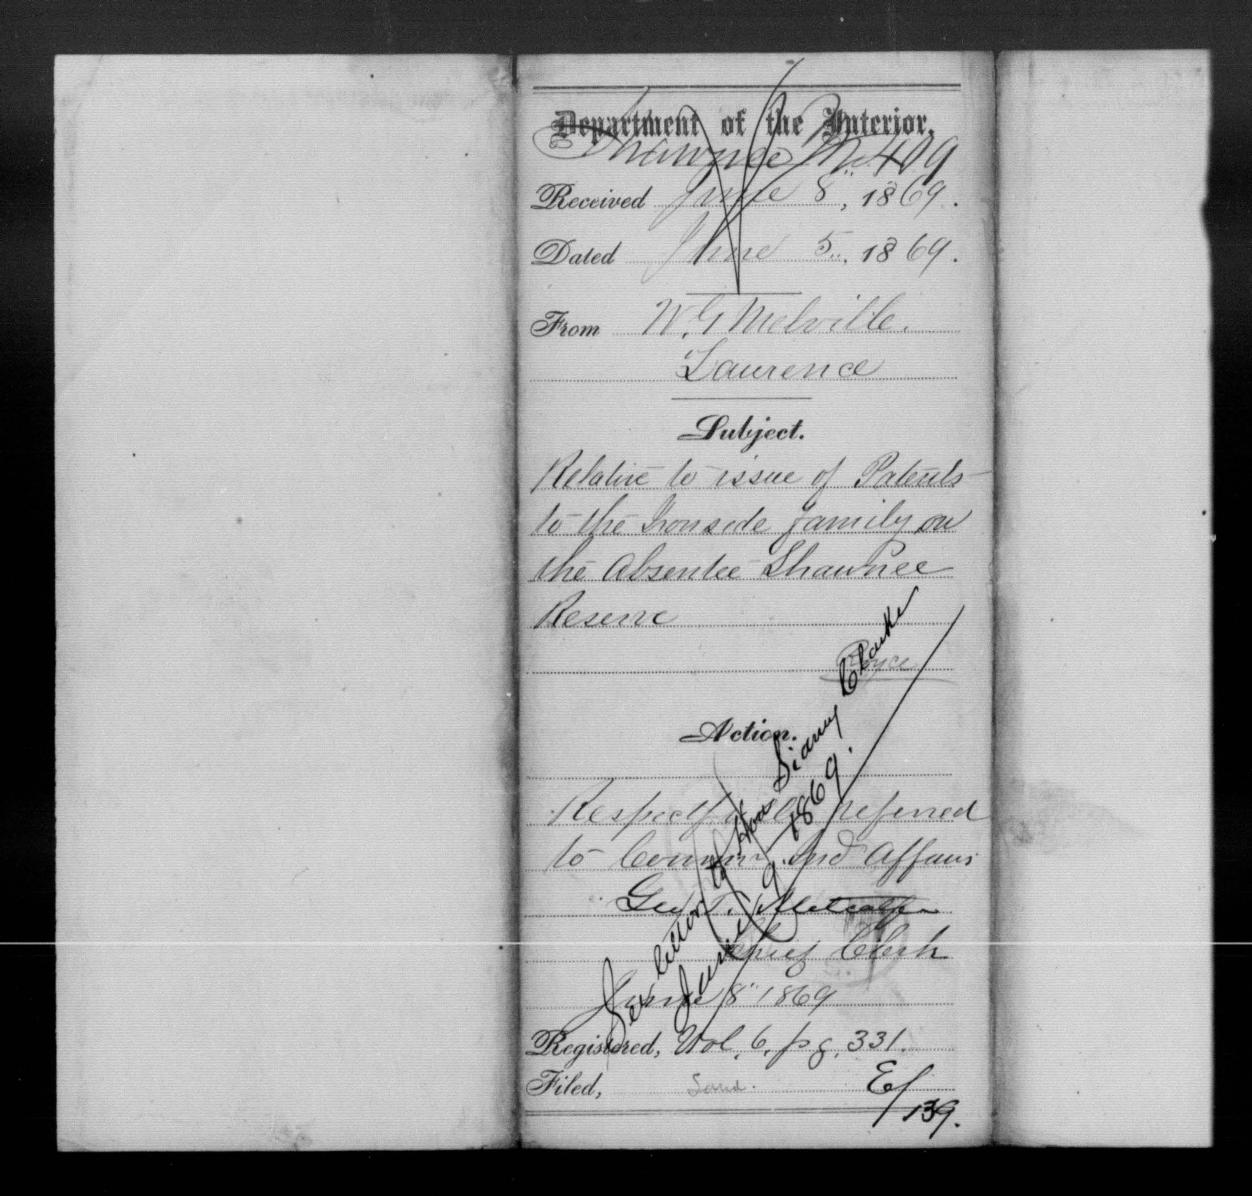 Department of the Interior.
Shawnee M. 409
Received June 8", 1869.
Dated June 5", 1869.
From W. G Melville.
Laurence
Subject.
Relative to issue of Patents
to the Ironside family on
the Absentee Shawnee
Reserve
Royce
Action.
Respectfully referred
to Commr. Ind Affairs
Geo. T. Metcalfe
Chief Clerk
June 8" 1869
See letter to Hon Sidney Clarke
June 9 - 1869.
Registered, Vol. 6, pg. 331.
Filed, Land.
E/139.